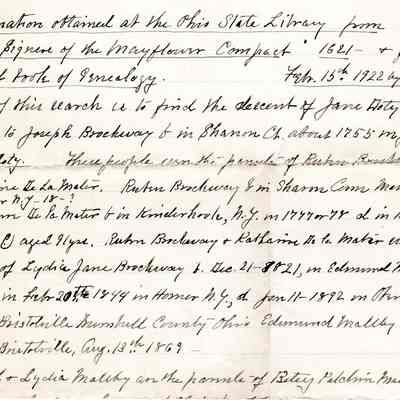 mation obtained at the Ohio State Library from
Signers of the Mayflower Compact " 1621 - + f
d book of Genealogy. Feby. 15th 1922 by
of this search is to find the descent of Jane Doty
to Joseph Brockway b in Sharon Ct. about 1755 m
Doty. These people were the parents of Rubin Brock
ine De La Mater. Rubin Brockway b in Sharon Conn Mar
N.Y - 18 - ?
De la Mater b in Kinderhook, N.Y. in 1777 or 78 d. in
aged 91yse. Rubin Brockway + Katharine De la Mater w
of Lydia Jane Brockway b. Dec. 21 - 1821, in Edmund M
in Feb 20th 1844 in Homer N.Y, d Jan 11 - 1892 in Ohio
Bristolville Trumbull County Ohio Edmund Maltby
Bristolville, Aug. 13th 1869 -
d + Lydia Maltby are the parents of Betsy Patchin Ma